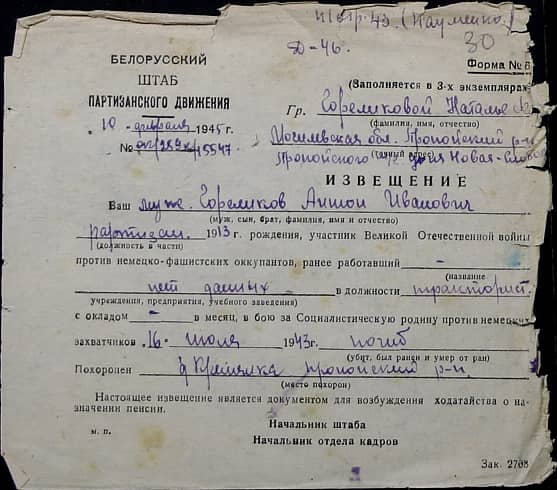 (Науменко)
30
Д-46.
БЕЛОРУССКИЙ
ШТАБ
ПАРТИЗАНСКОГО ДВИЖЕНИЯ
Форма № 6
(Заполняется в 3-х экземплярах
10 февраля 1945 г.
Гр. Гореликовой Наталье
(фамилия, имя, отчество)
№ 15547
Могилевская обл. Пропойский р-н
Пропойского дня Новая-
(точный адрес)
ИЗВЕЩЕНИЕ
Ваш муж. Гореликов Антон Иванович
(муж, сын, брат, фамилия, имя и отчество)
партизан. 1913 г. рождения, участник Великой Отечественной войны
(должность в части)
против немецко-фашистских оккупантов, ранее работавший —
(название
нет данных в должности тракторист.
учреждения, предприятия, учебного заведения)
с окладом — в месяц, в бою за Социалистическую родину против немецких
захватчиков 16 июля 1943 г. погиб
(убит, был ранен и умер от ран)
Похоронен д Пропойский р-н.
(место похорон)
Настоящее извещение является документом для возбуждения ходатайства о на-
значении пенсии.
Начальник штаба
м. п.
Начальник отдела кадров
Зак. 2708